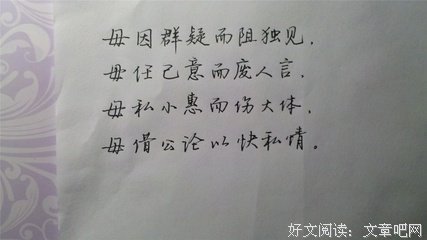 毋因群疑而阻独见，
毋任己意而废人言，
毋私小惠而伤大体，
毋借公论以快私情。
好文阅读：文章吧网